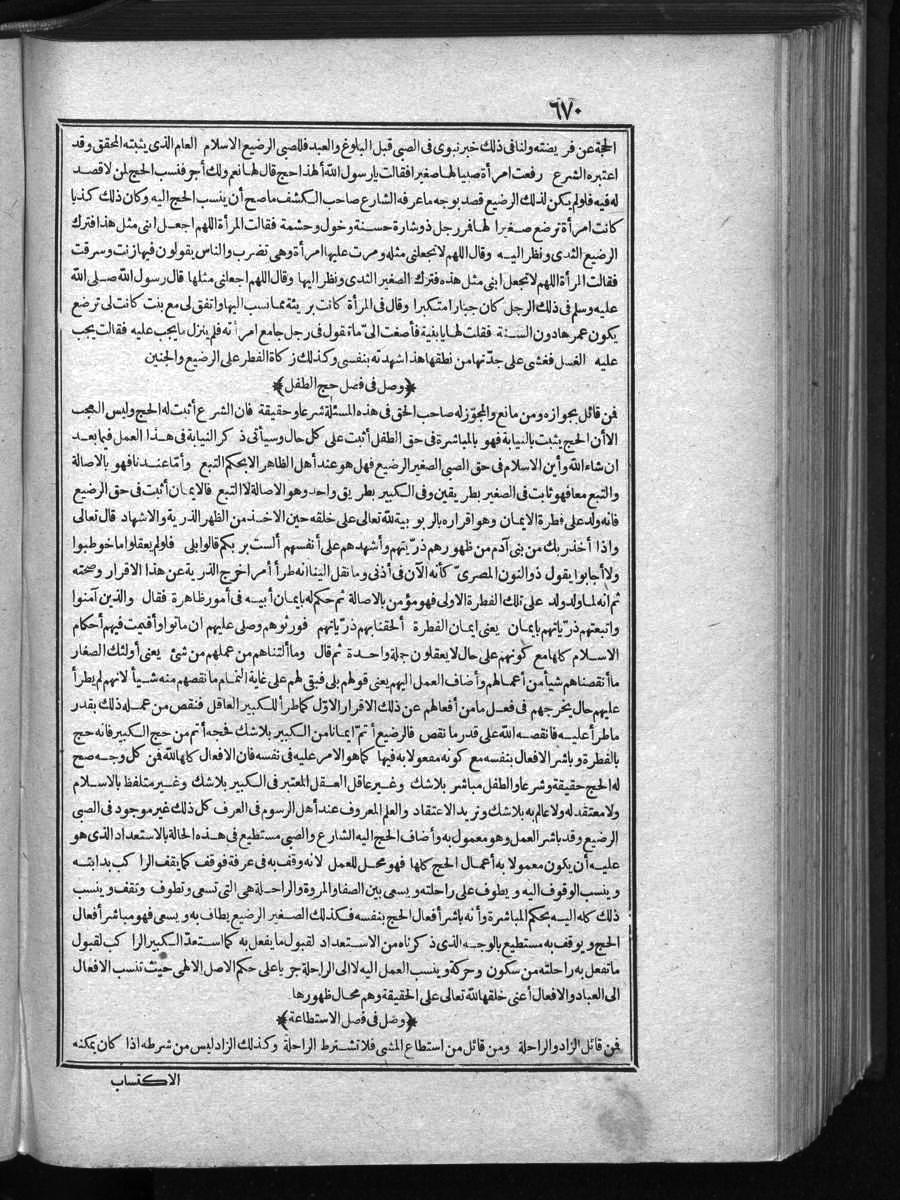 ٦٧٠
الحجة عن فريضته ولنا في ذلك خبر نبوى في الصبى قبل البلوغ والعبد فللصبى الرضيع الاسلام العام الذى يثبته المحقق وقد
اعتبره الشرع رفعت امرأة صبيا لها صغيرا فقالت يارسول الله ألهذا حج قال لها نعم ولك أجر فنسب الحج لمن لا قصد
له فيه فلو لم يكن لذلك الرضيع قصد بوجه ما عرفه الشارع صاحب الكشف ما صح أن ينسب الحج اليه وكان ذلك كذبا
كانت امرأة ترضع صغيرا لها فمر رجل ذو شارة حسنة وخول وحشمة فقالت المرأة اللهم اجعل ابنى مثل هذا فترك
الرضيع الثدى ونظر اليه وقال اللهم لا تجعلنى مثله ومرت عليها امرأة وهى تضرب والناس يقولون فيها زنت وسرقت
فقالت المرأة اللهم لا تجعل ابنى مثل هذه فترك الصغير الثدى ونظر اليها وقال اللهم اجعلنى مثلها قال رسول الله صلى الله
عليه وسلم في ذلك الرجل كان جبارا متكبرا وقال في المرأة كانت بريئة مما نسب اليها واتفق لى مع بنت كانت لى ترضع
يكون عمرها دون السنة فقلت لها يا بنية فأصغت الىّ ما تقول في رجل جامع امرأته فلم ينزل ما يجب عليه فقالت يجب
عليه الغسل فغشى على جدّتها من نطقها هذا شهدته بنفسى وكذلك زكاة الفطر على الرضيع والجنين
﴿وصل في فصل حج الطفل﴾
فمن قائل بجوازه ومن مانع والمجوّز له صاحب الحق في هذه المسئلة شرعا وحقيقة فان الشرع أثبت له الحج وليس العجب
الا أن الحج يثبت بالنيابة فهو بالمباشرة في حق الطفل أثبت على كل حال وسيأتى ذكر النيابة في هذا العمل فيما بعد
ان شاء الله وأين الاسلام في حق الصبى الصغير الرضيع فهل هو عند أهل الظاهر الا بحكم التبع وأمّا عندنا فهو بالاصالة
والتبع معا فهو ثابت في الصغير بطريقين وفي الكبير بطريق واحد وهو الاصالة لا التبع فالايمان أثبت في حق الرضيع
فانه ولد على فطرة الايمان وهو اقراره بالربوبية لله تعالى على خلقه حين الاخذ من الظهر الذرية والاشهاد قال تعالى
واذا أخذ ربك من بنى آدم من ظهورهم ذرّيتهم وأشهدهم على أنفسهم ألست بربكم قالوا بلى فلو لم يعقلوا ما خوطبوا
ولا أجابوا يقول ذو النون المصرىّ كأنه الآن في أذنى وما نقل الينا انه طرأ أمر أخرج الذرية عن هذا الاقرار وصحته
ثم انه لما ولد ولد على تلك الفطرة الاولى فهو مؤمن بالاصالة ثم حكم له بايمان أبيه في أمور ظاهرة فقال والذين آمنوا
واتبعتهم ذرّياتهم بايمان يعنى ايمان الفطرة ألحقنا بهم ذرّياتهم فورثوهم وصلى عليهم ان ماتوا وأقيمت فيهم أحكام
الاسلام كلها مع كونهم على حال لا يعقلون جملة واحدة ثم قال وما ألتناهم من عملهم من شئ يعنى أولئك الصغار
ما أنقصناهم شيأ من أعمالهم وأضاف العمل اليهم يعنى قولهم بلى فبقى لهم على غاية التمام ما نقصهم منه شيأ لانهم لم يطرأ
عليهم حال يخرجهم في فعل ما من أفعالهم عن ذلك الاقرار الاوّل كما طرأ للكبير العاقل فنقص من عمله ذلك بقدر
ما طرأ عليه فانقصه الله على قدر ما نقص فالرضيع أتمّ ايمانا من الكبير بلا شك فحجه أتم من حج الكبير فانه حج
بالفطرة وباشر الافعال بنفسه مع كونه مفعولا به فيها كما هو الامر عليه في نفسه فان الافعال كلها لله فمن كل وجه صح
له الحج حقيقة وشرعا والطفل مباشر بلا شك وغير عاقل العقل المعتبر في الكبير بلا شك وغير متلفظ بالاسلام
ولا معتقد له ولا عالم به بلا شك ونريد الاعتقاد والعلم المعروف عند أهل الرسوم في العرف كل ذلك غير موجود في الصبى
الرضيع وقد باشر العمل وهو معمول به وأضاف الحج اليه الشارع والصبى مستطيع في هذه الحالة بالاستعداد الذى هو
عليه أن يكون معمولا به أعمال الحج كلها فهو محل للعمل لانه وقف به في عرفة فوقف كما يقف الراكب بدابته
وينسب الوقوف اليه ويطوف على راحلته ويسعى بين الصفا والمروة والراحلة هى التى تسعى وتطوف وتقف وينسب
ذلك كله اليه بحكم المباشرة وأنه باشر أفعال الحج بنفسه فكذلك الصغير الرضيع يطاف به ويسعى فهو مباشر أفعال
الحج ويوقف به مستطيع بالوجه الذى ذكرناه من الاستعداد لقبول ما يفعل به كما استعدّ الكبير الراكب لقبول
ما تفعل به راحلته من سكون وحركة وينسب العمل اليه لا الى الراحلة جريا على حكم الاصل الالهى حيث تنسب الافعال
الى العباد والافعال أعنى خلقها لله تعالى على الحقيقة وهم محال ظهورها
﴿وصل في فصل الاستطاعة﴾
فمن قائل الزاد والراحلة ومن قائل من استطاع المشى فلا تشترط الراحلة وكذلك الزاد ليس من شرطه اذا كان يمكنه
الاكتساب